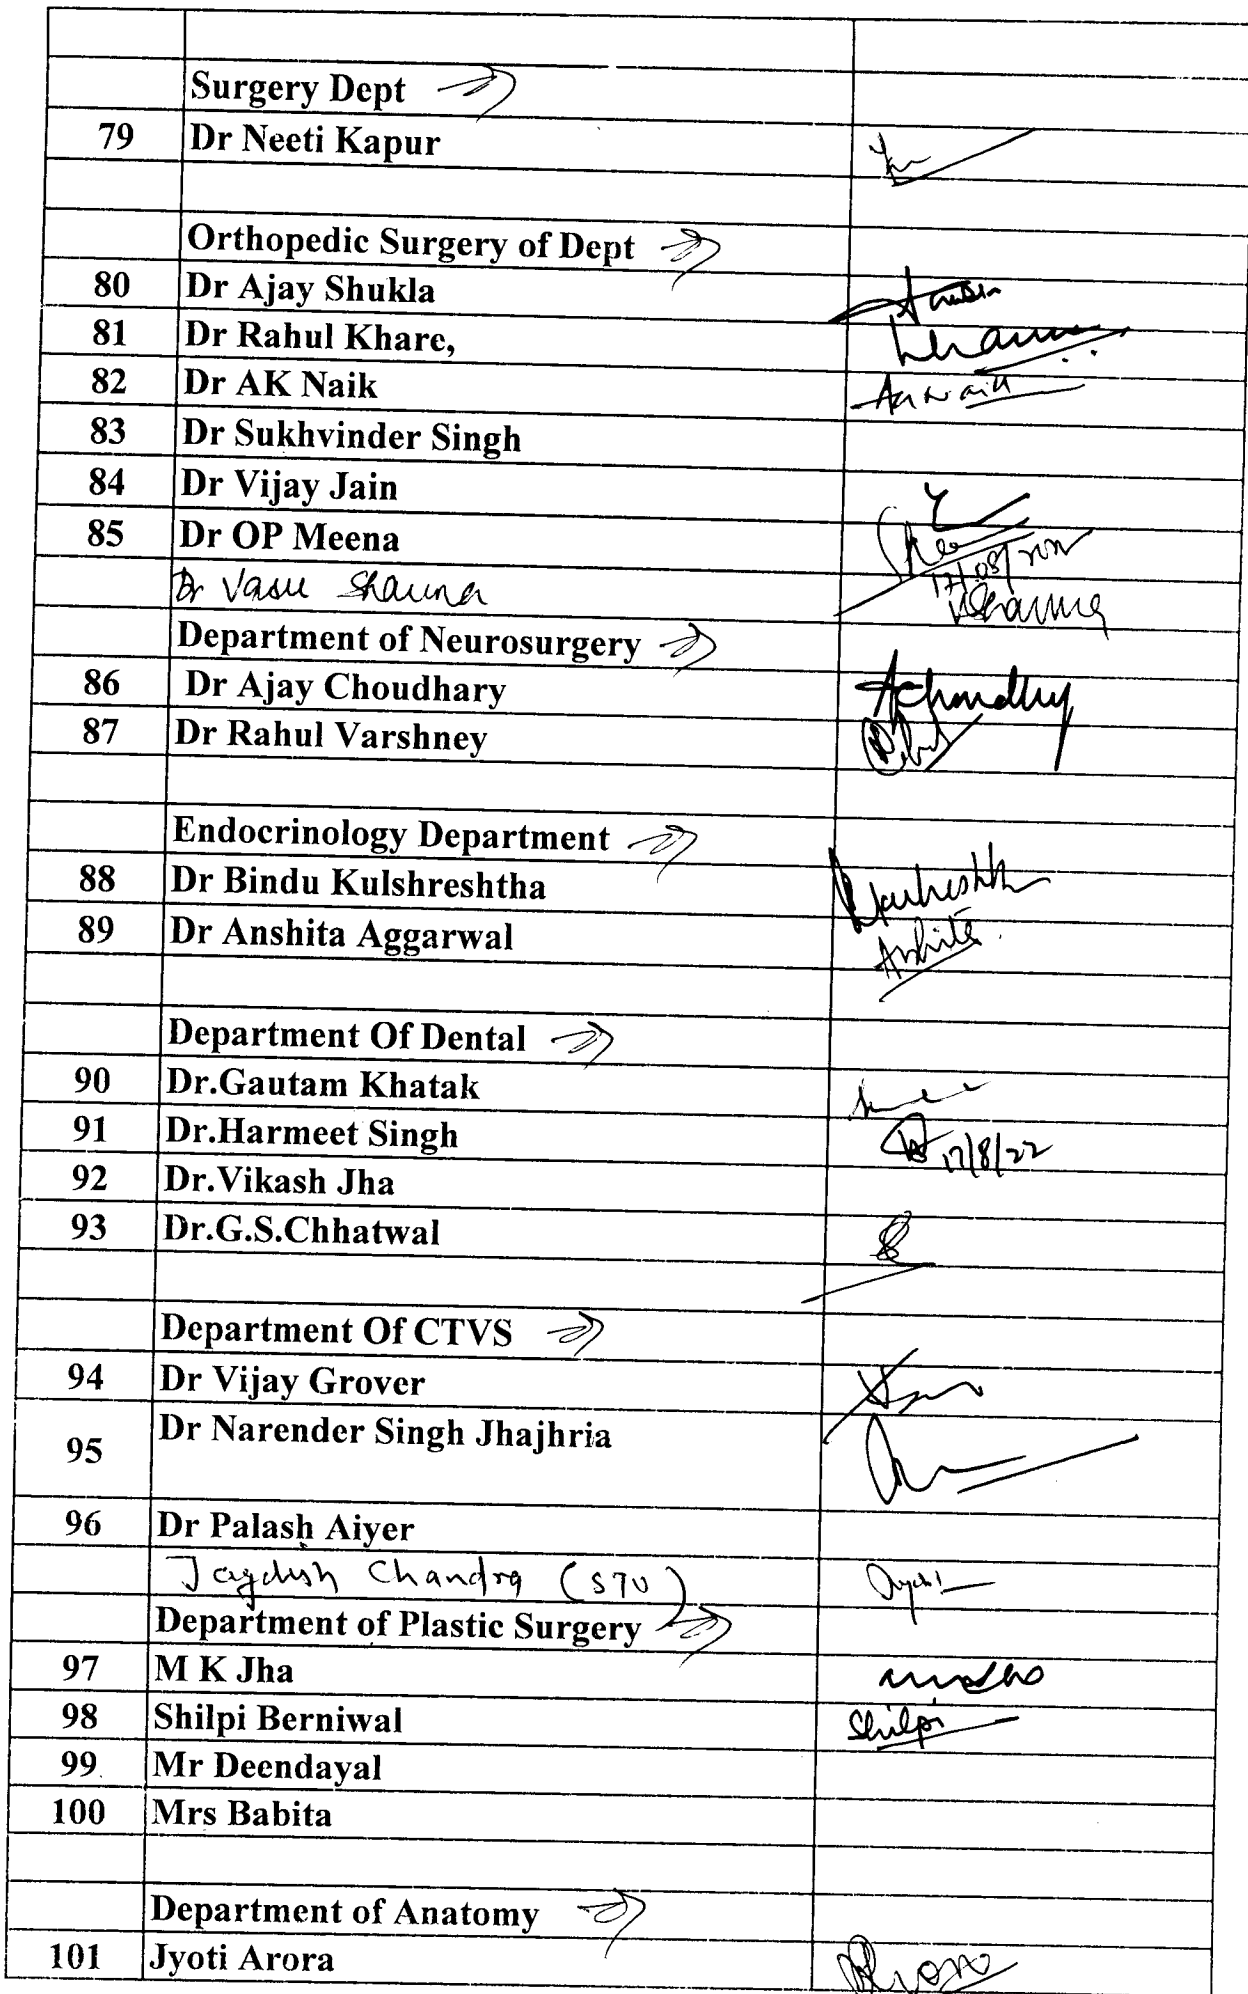 Surgery Dept
79 Dr Neeti Kapur
Orthopedic Surgery of Dept
80 Dr Ajay Shukla
81 Dr Rahul Khare,
82 Dr AK Naik
83 Dr Sukhvinder Singh
84 Dr Vijay Jain
85 Dr OP Meena
17/08/
Dr Vasu Sharma
Department of Neurosurgery
86 Dr Ajay Choudhary
87 Dr Rahul Varshney
Endocrinology Department
88 Dr Bindu Kulshreshtha
89 Dr Anshita Aggarwal Anshita
Department Of Dental
90 Dr.Gautam Khatak
91 Dr.Harmeet Singh 17/8/22
92 Dr.Vikash Jha
93 Dr.G.S.Chhatwal
Department Of CTVS
94 Dr Vijay Grover
95 Dr Narender Singh Jhajhria
96 Dr Palash Aiyer
Jagdish Chandra
Department of Plastic Surgery
97 M K Jha
98 Shilpi Berniwal Shilpi
99 Mr Deendayal
100 Mrs Babita
Department of Anatomy
101 Jyoti Arora